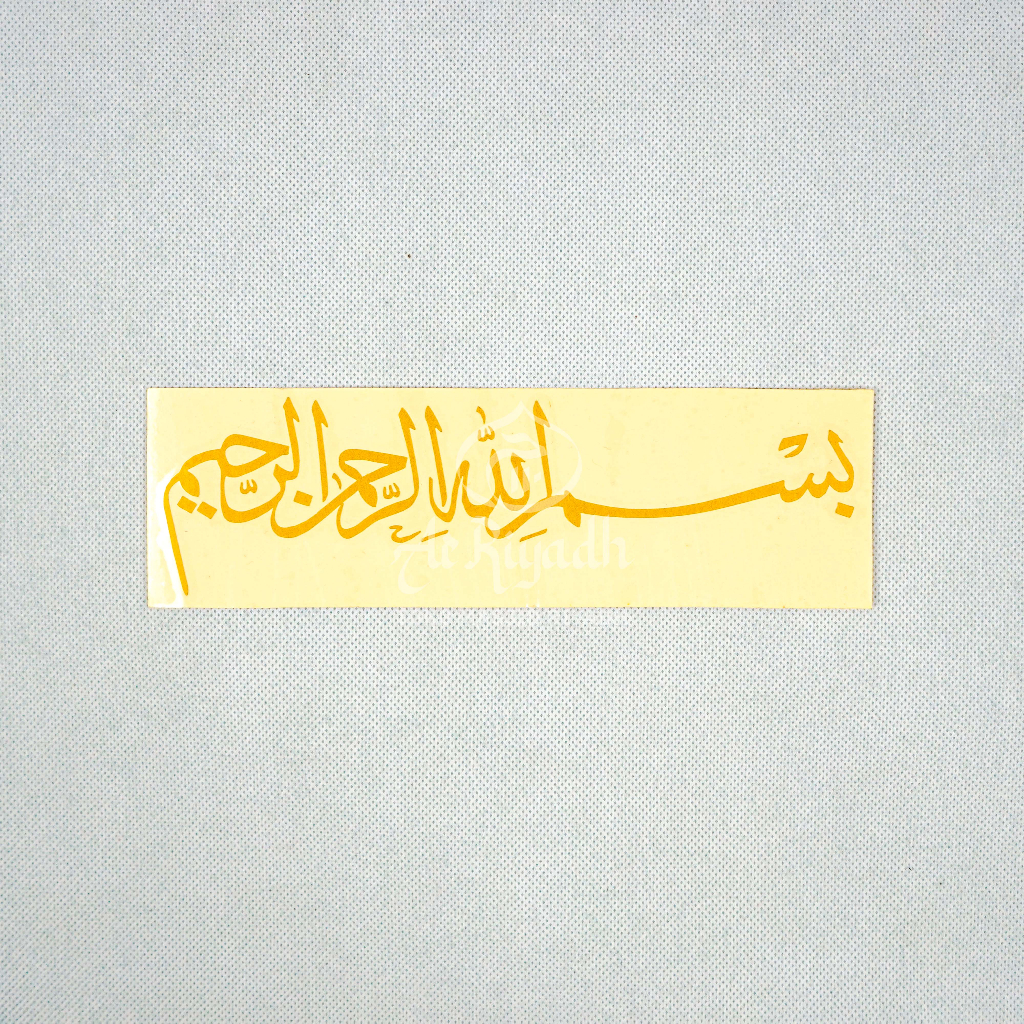 بسم الله الرحمن الرحيم
Ar Riyadh